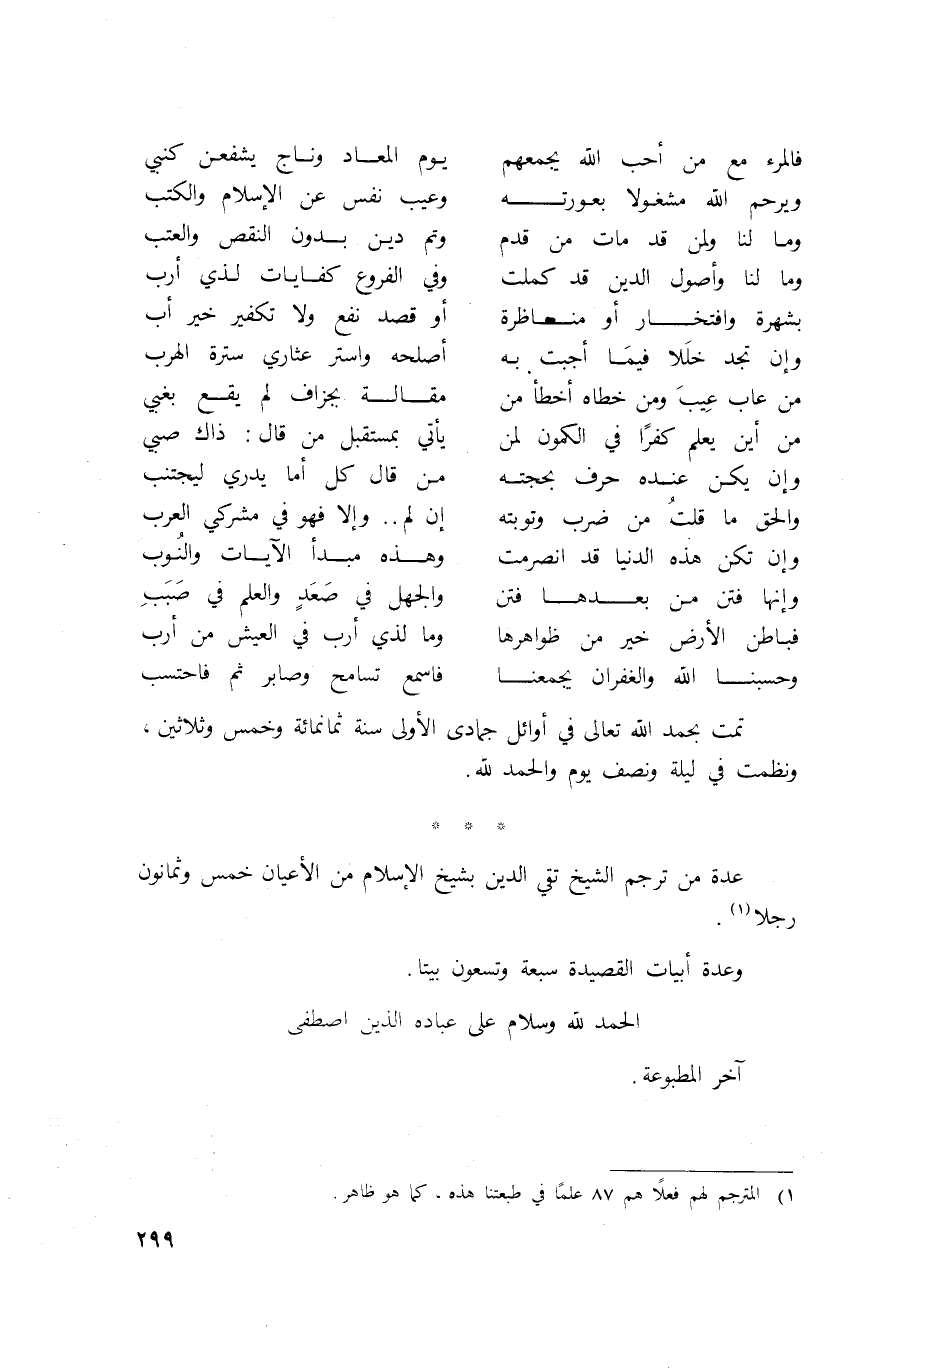 فالمرء مع من أحب الله يجمعهم يوم المعاد وناج يشفعن كنبي
ويرحم الله مشغولا بعورته وعيب نفس عن الإسلام والكتب
وما لنا ولمن قد مات من قدم وتم دين بدون النقص والعتب
وما لنا وأصول الدين قد كملت وفي الفروع كفايات لذي أرب
بشهرة وافتخار أو مناظرة أو قصد نفع ولا تكفير خير أب
وإن تجد خللا فيما أجبت به أصلحه واستر عثاري سترة الهرب
من عاب عِيبَ ومن خطاه أخطأ من مقالة بجزاف لم يقع بغبي
من أين يعلم كفرًا في الكمون لمن يأتي بمستقبل من قال : ذاك صبي
وإن يكن عنده حرف بحجته من قال كل أما يدري ليجتنب
والحق ما قلتُ من ضرب وتوبته إن لم .. وإلا فهو في مشركي العرب
وإن تكن هذه الدنيا قد انصرمت وهذه مبدأ الآيات والنُوب
وإنها فتن من بعدها فتن والجهل في صَعَدٍ والعلم في صَبَبِ
فباطن الأرض خير من ظواهرها وما لذي أرب في العيش من أرب
وحسبنا الله والغفران يجمعنا فاسمع تسامح وصابر ثم فاحتسب
تمت بحمد الله تعالى في أوائل جمادى الأولى سنة ثمانمائة وخمس وثلاثين ،
ونظمت في ليلة ونصف يوم والحمد لله .
* * *
عدة من ترجم الشيخ تقي الدين بشيخ الإسلام من الأعيان خمس وثمانون
رجلا(١) .
وعدة أبيات القصيدة سبعة وتسعون بيتا .
الحمد لله وسلام على عباده الذين اصطفى
آخر المطبوعة .
١) المترجم لهم فعلًا هم ٨٧ علمًا في طبعتنا هذه . كما هو ظاهر .
٢٩٩